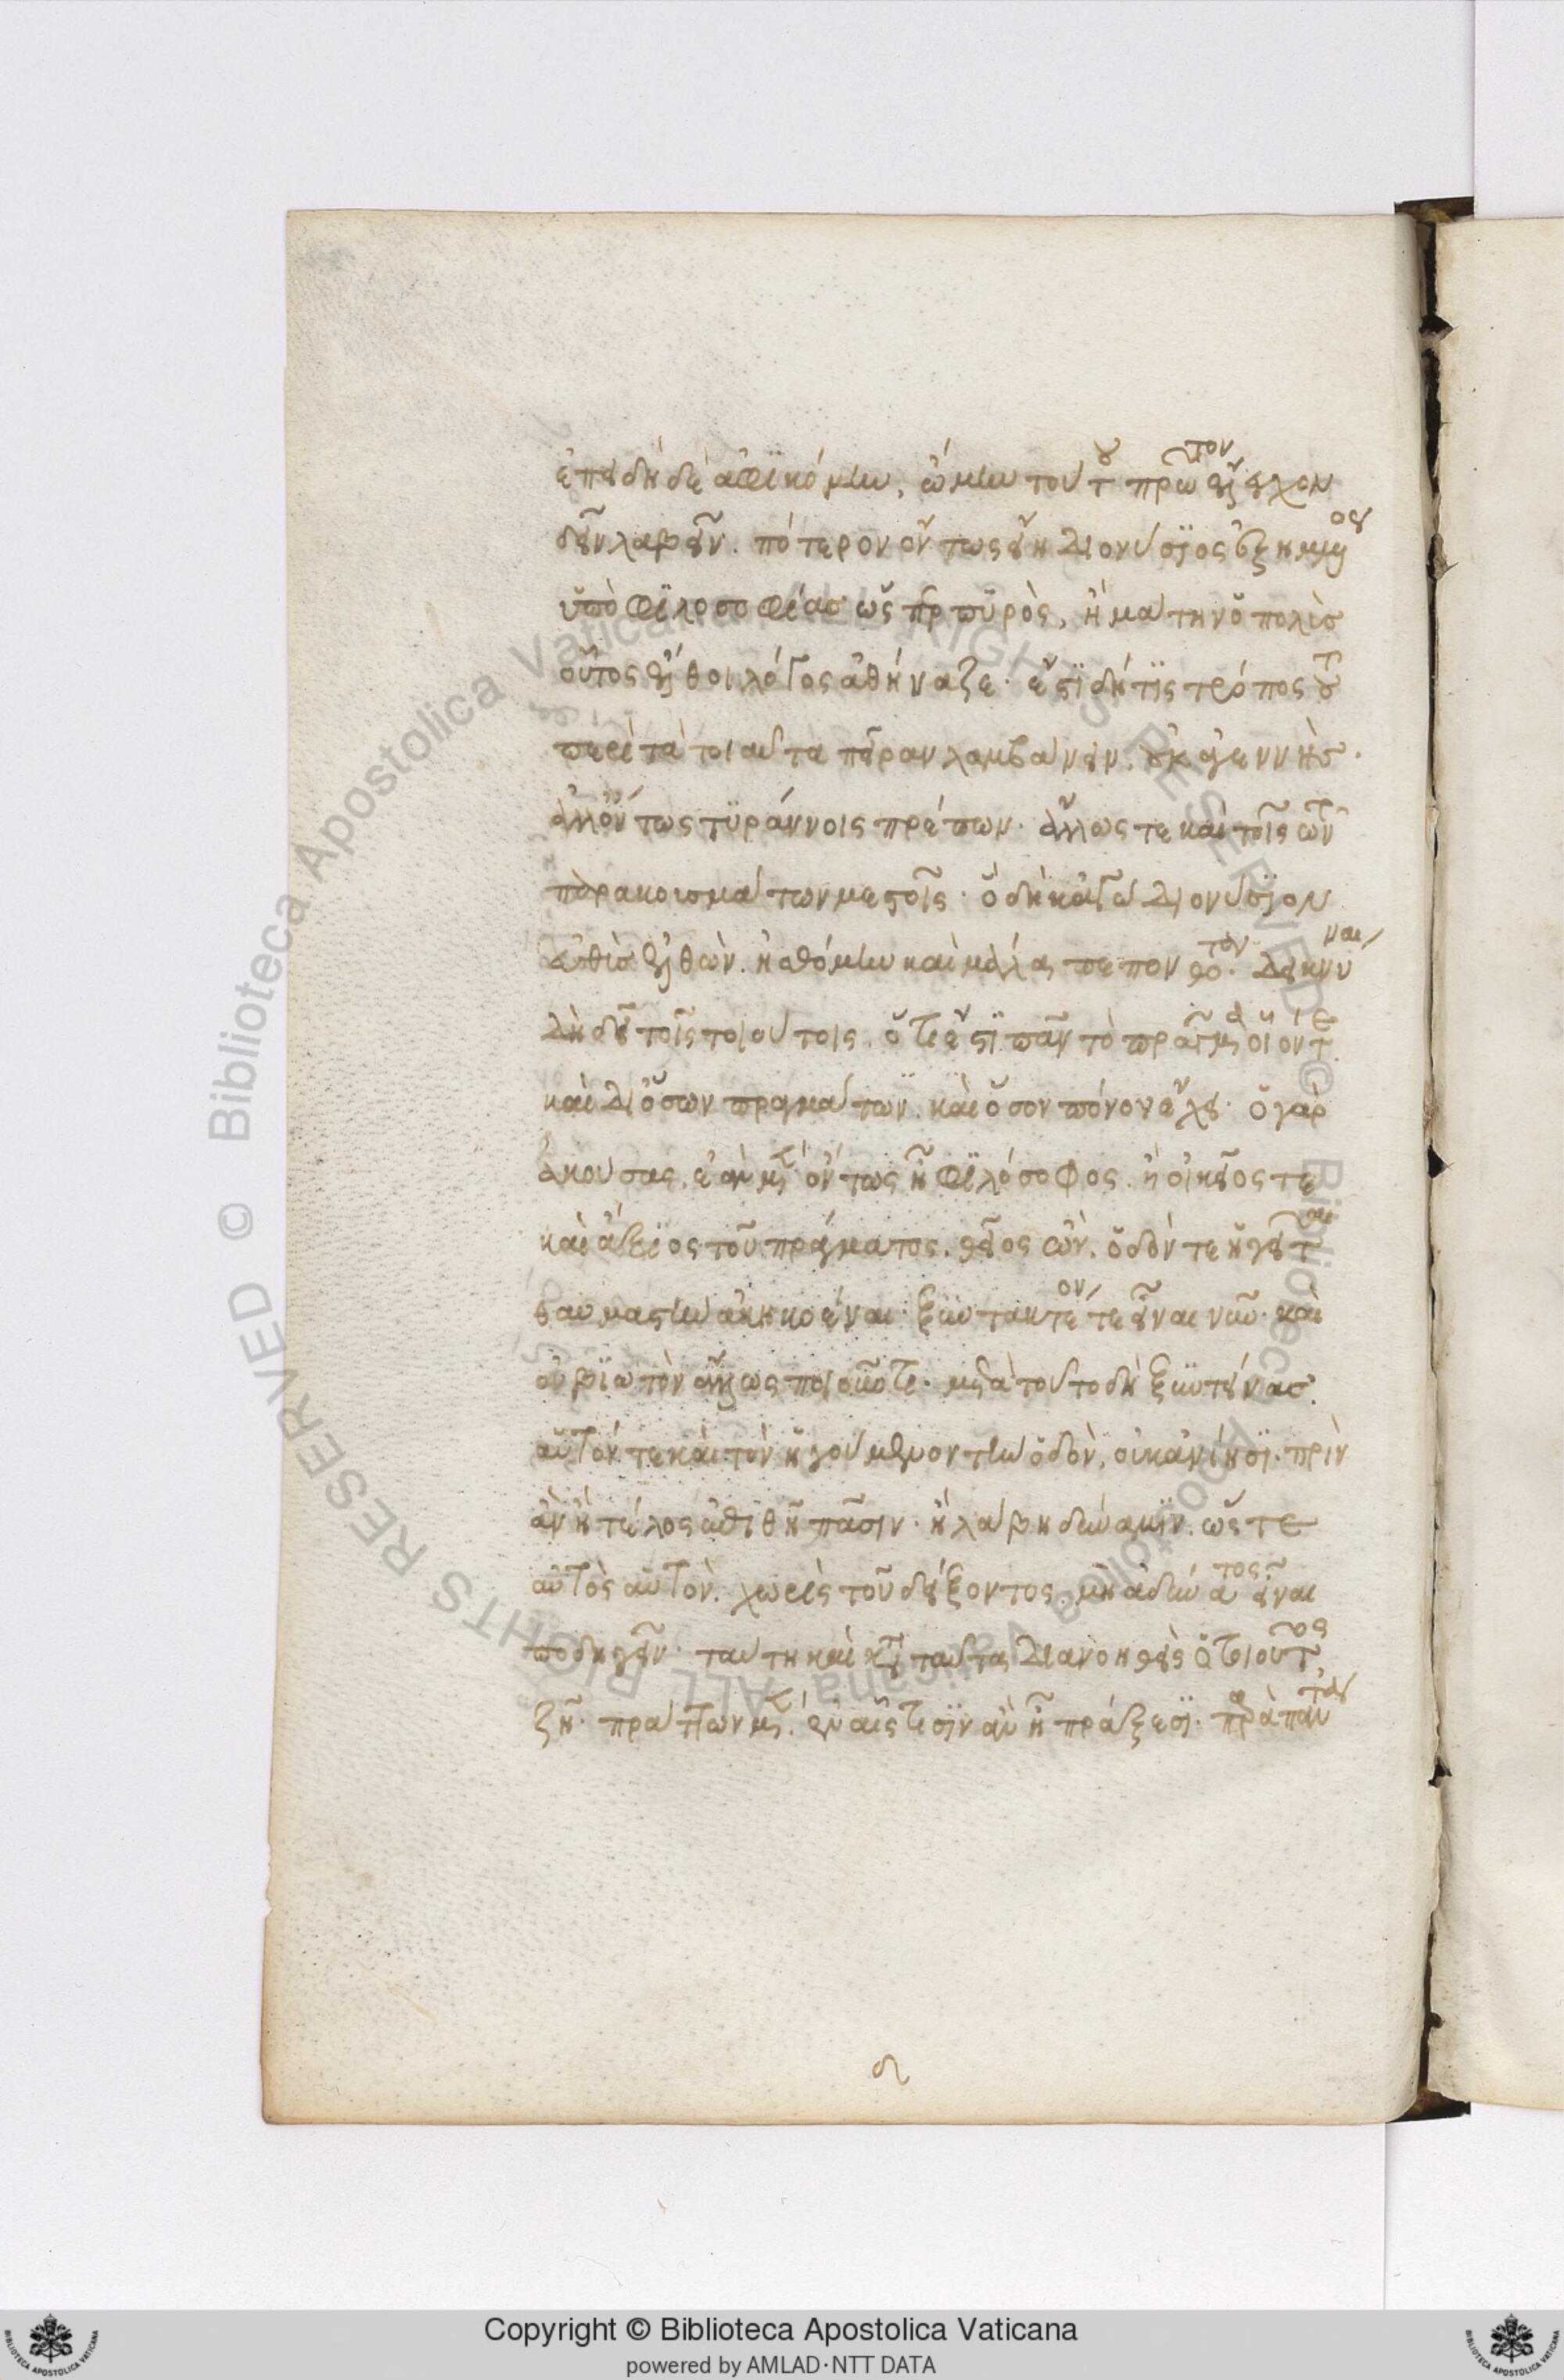 ἐπειδὴ δὲ ἀφϊκόμην, ᾤμην τούτου πρῶτον ἔλεγχον
δεῖν λαβεῖν. πότερον ὄντως εἴη Διονύσϊος ἐξημμένου
ὑπὸ φϊλοσοφίας ὥσπερ πυρὸς, ἢ μάτην ὁ πολὺσ
οὗτος ἔλθοι λόγος ἀθήναζε. ἔστϊ δή τϊς τρόπος τοῦ
περὶ τὰ τοιαῦτα πεῖραν λαμβάνειν. οὐκ ἀγεννὴσ.
ἀλλ' ὄντως τϋράννοις πρέπων. ἄλλως τε καὶ τοῖς τῶν
παρακουσμάτων μεστοῖς. ὃ δὴ κἀγὼ Διονύσϊον
εὐθὺσ ἐλθὼν. ᾐσθόμην καὶ μάλα πεπονθότα. Δεικνύναι
Δὴ δεῖ τοῖς τοιούτοις. ὅτι ἔστϊ πᾶν τὸ πρᾶγμα οἷόν τε
καὶ Δι' ὅσων πραγμάτων. καὶ ὅσον πόνον ἔχει. ὁ γὰρ
ἀκούσας. ἐὰν μὲν ὄντως ᾖ φϊλόσοφος. ἢ οἰκεῖος τε
καὶ ἄξιος τοῦ πράγματος. θεῖος ὤν. ὁδόν τε ἡγεῖται
θαυμαστὴν ἀκηκοέναι. ξυντακτέον τε εἶναι νῦν. καὶ
οὐ βϊωτὸν ἄλλως ποιοῦντι. μετὰ τοῦτο δὴ ξυντείνασ.
αὑτόν τε καὶ τὸν ἡγούμενον τὴν ὁδόν. οὐκ ἀνίησϊ. πρὶν
ἂν ἢ τέλος ἐπιθῇ πᾶσιν. ἢ λάβῃ δύναμϊν. ὥστε
αὐτὸς αὑτὸν. χωρὶς τοῦ δείξοντος. μὴ ἀδύνατος εἶναι
ποδηγεῖν. ταύτῃ καὶ κατὰ ταῦτα Διανοηθεὶς ὁ τοιοῦτος
ζῇ. πράττων μὲν. ἐν αἷς τισϊν ἂν ᾖ πράξεσϊ. παρὰ πάντα